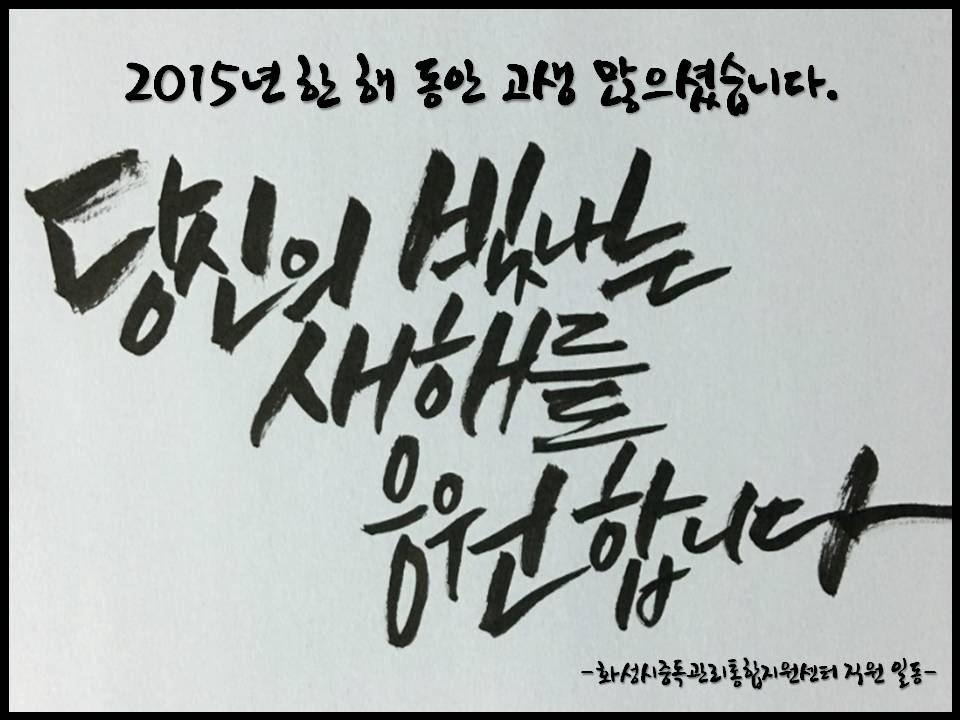 2015년 한 해 동안 고생 많으셨습니다.
당신의 빛나는
새해를
응원합니다
-화성시중독관리통합지원센터 직원 일동-